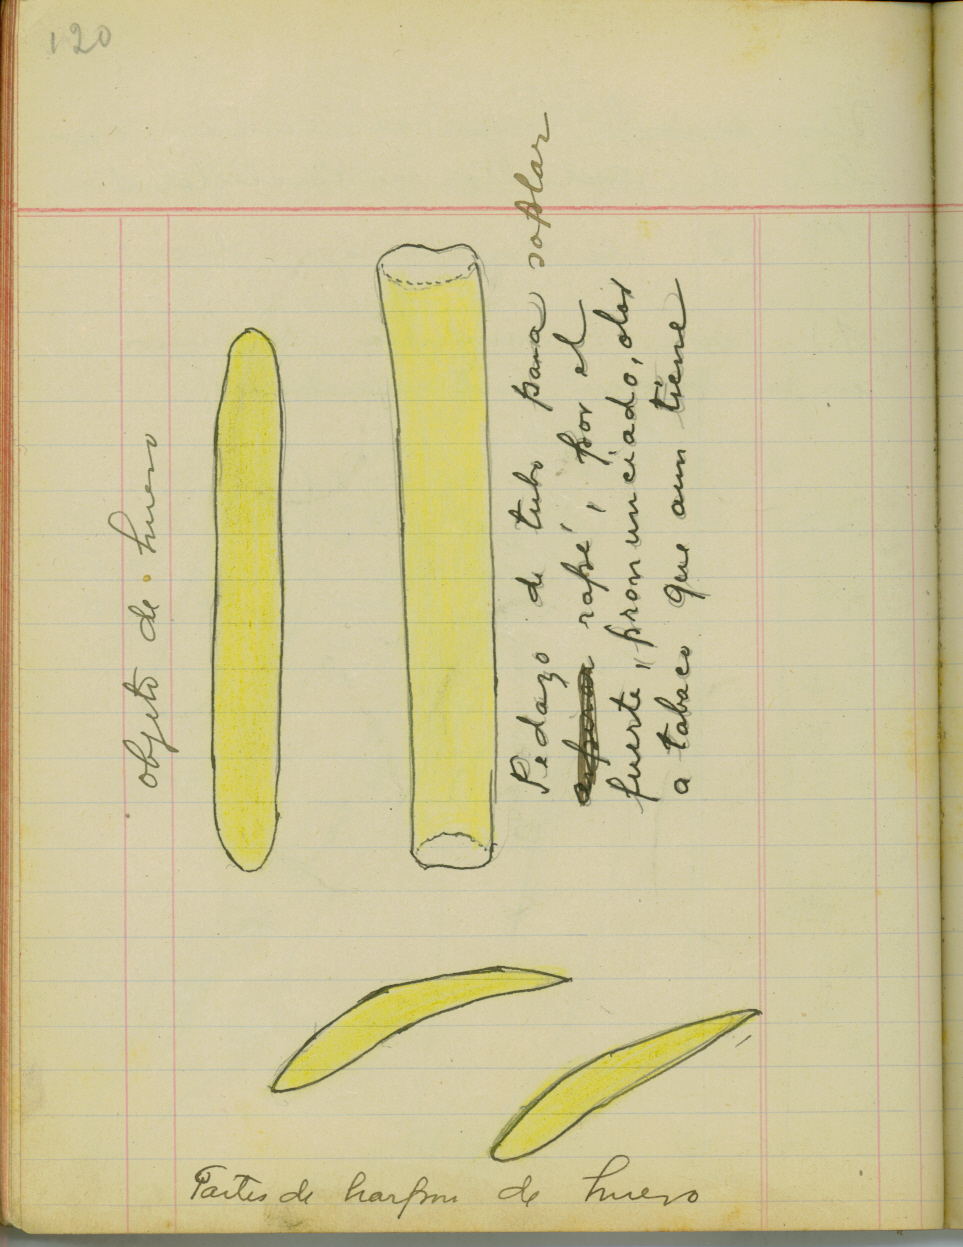 120
objeto de hueso
Pedazo de tubo para soplar
rapé, por el
fuerte, pronunciado, olor
a tabaco que aun tiene
Partes de harpon de hueso